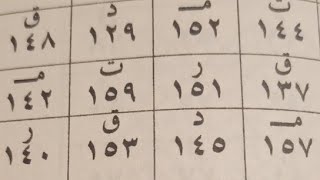 ت مـ د ق
١٤٤ ١٥٢ ١٢٩ ١٤٨
ق ر ت مـ
١٣٧ ١٥١ ١٥٩ ١٤٢
مـ د ق ر
١٥٧ ١٤٥ ١٥٣ ١٤٠